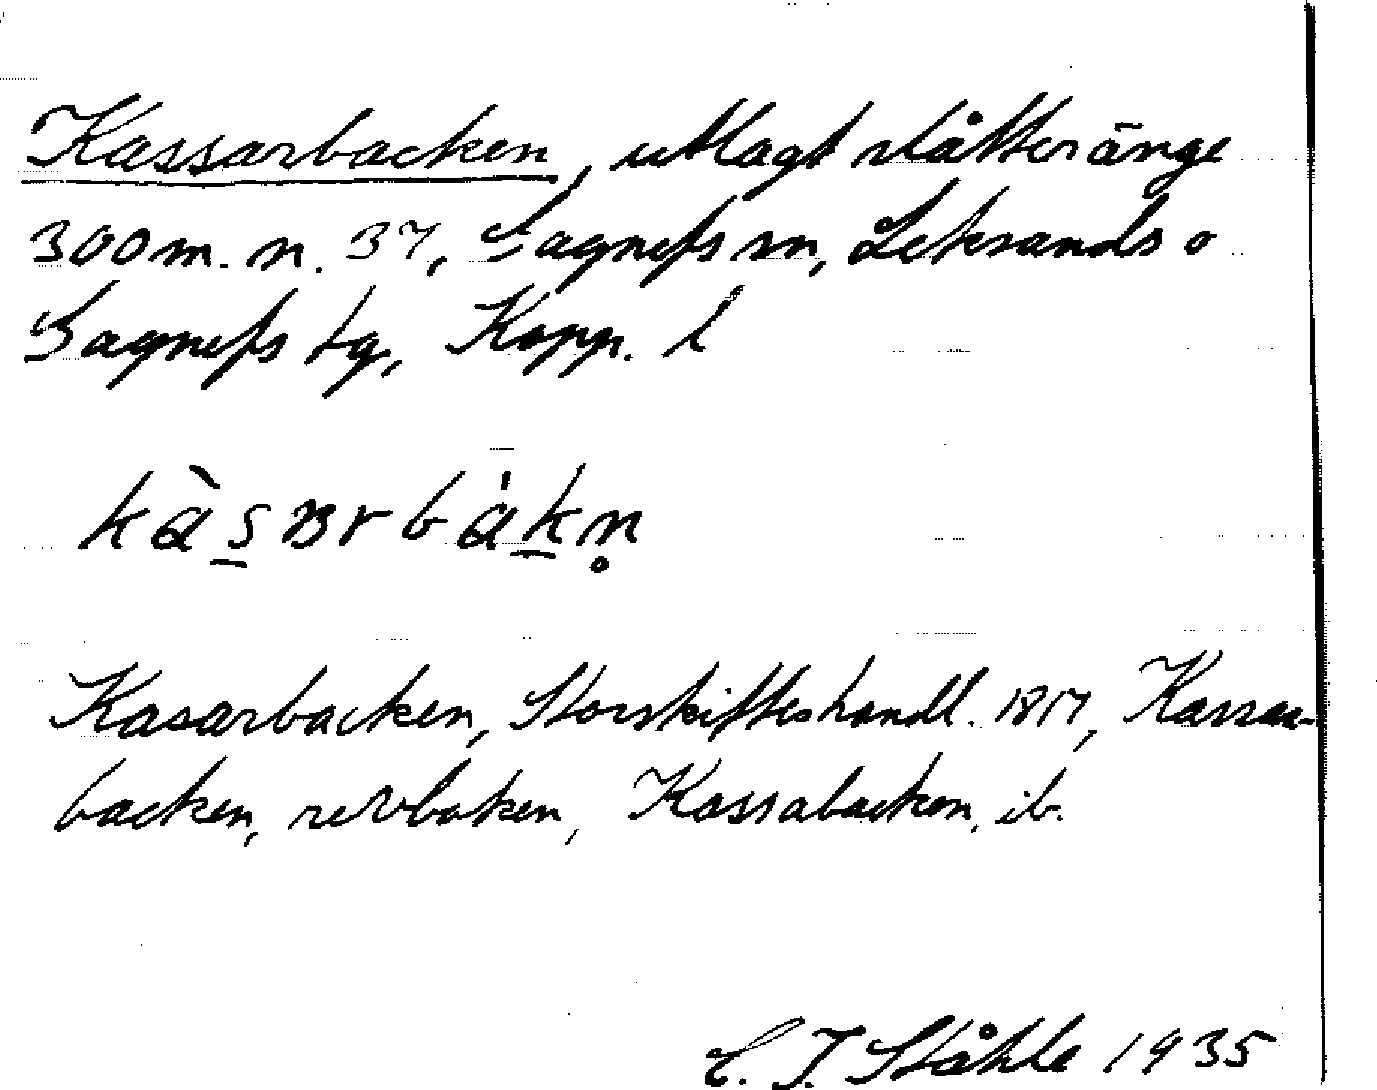 Kassarbacken, utlagt slåtteränge
300 m. n. 37, Gagnefs sn, Leksands o
Gagnefs tg, Kopp. l
kàsɐrbákn̥
Kasarbacken, Storskifteshandl. 1817, Kassar-
backen, revboken, Kassabacken, ib.
C. I. Ståhle 1935